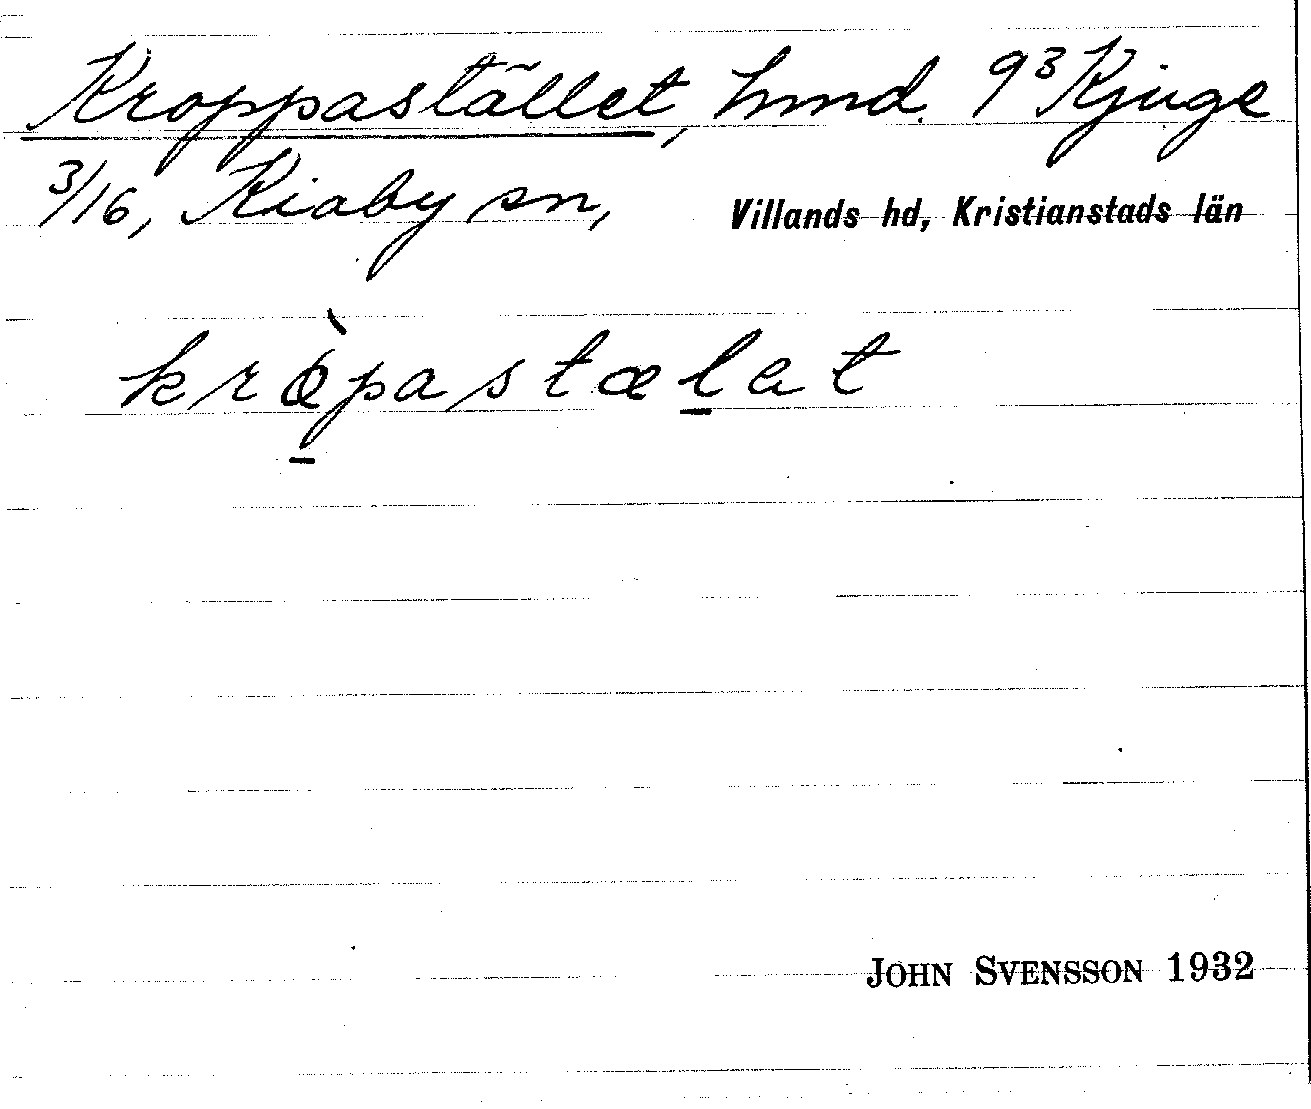 Kroppastället, hmd. 9³ Kjuge
3/16, Kiaby sn, Villands hd, Kristianstads län
kròpastælat
JOHN SVENSSON 1932